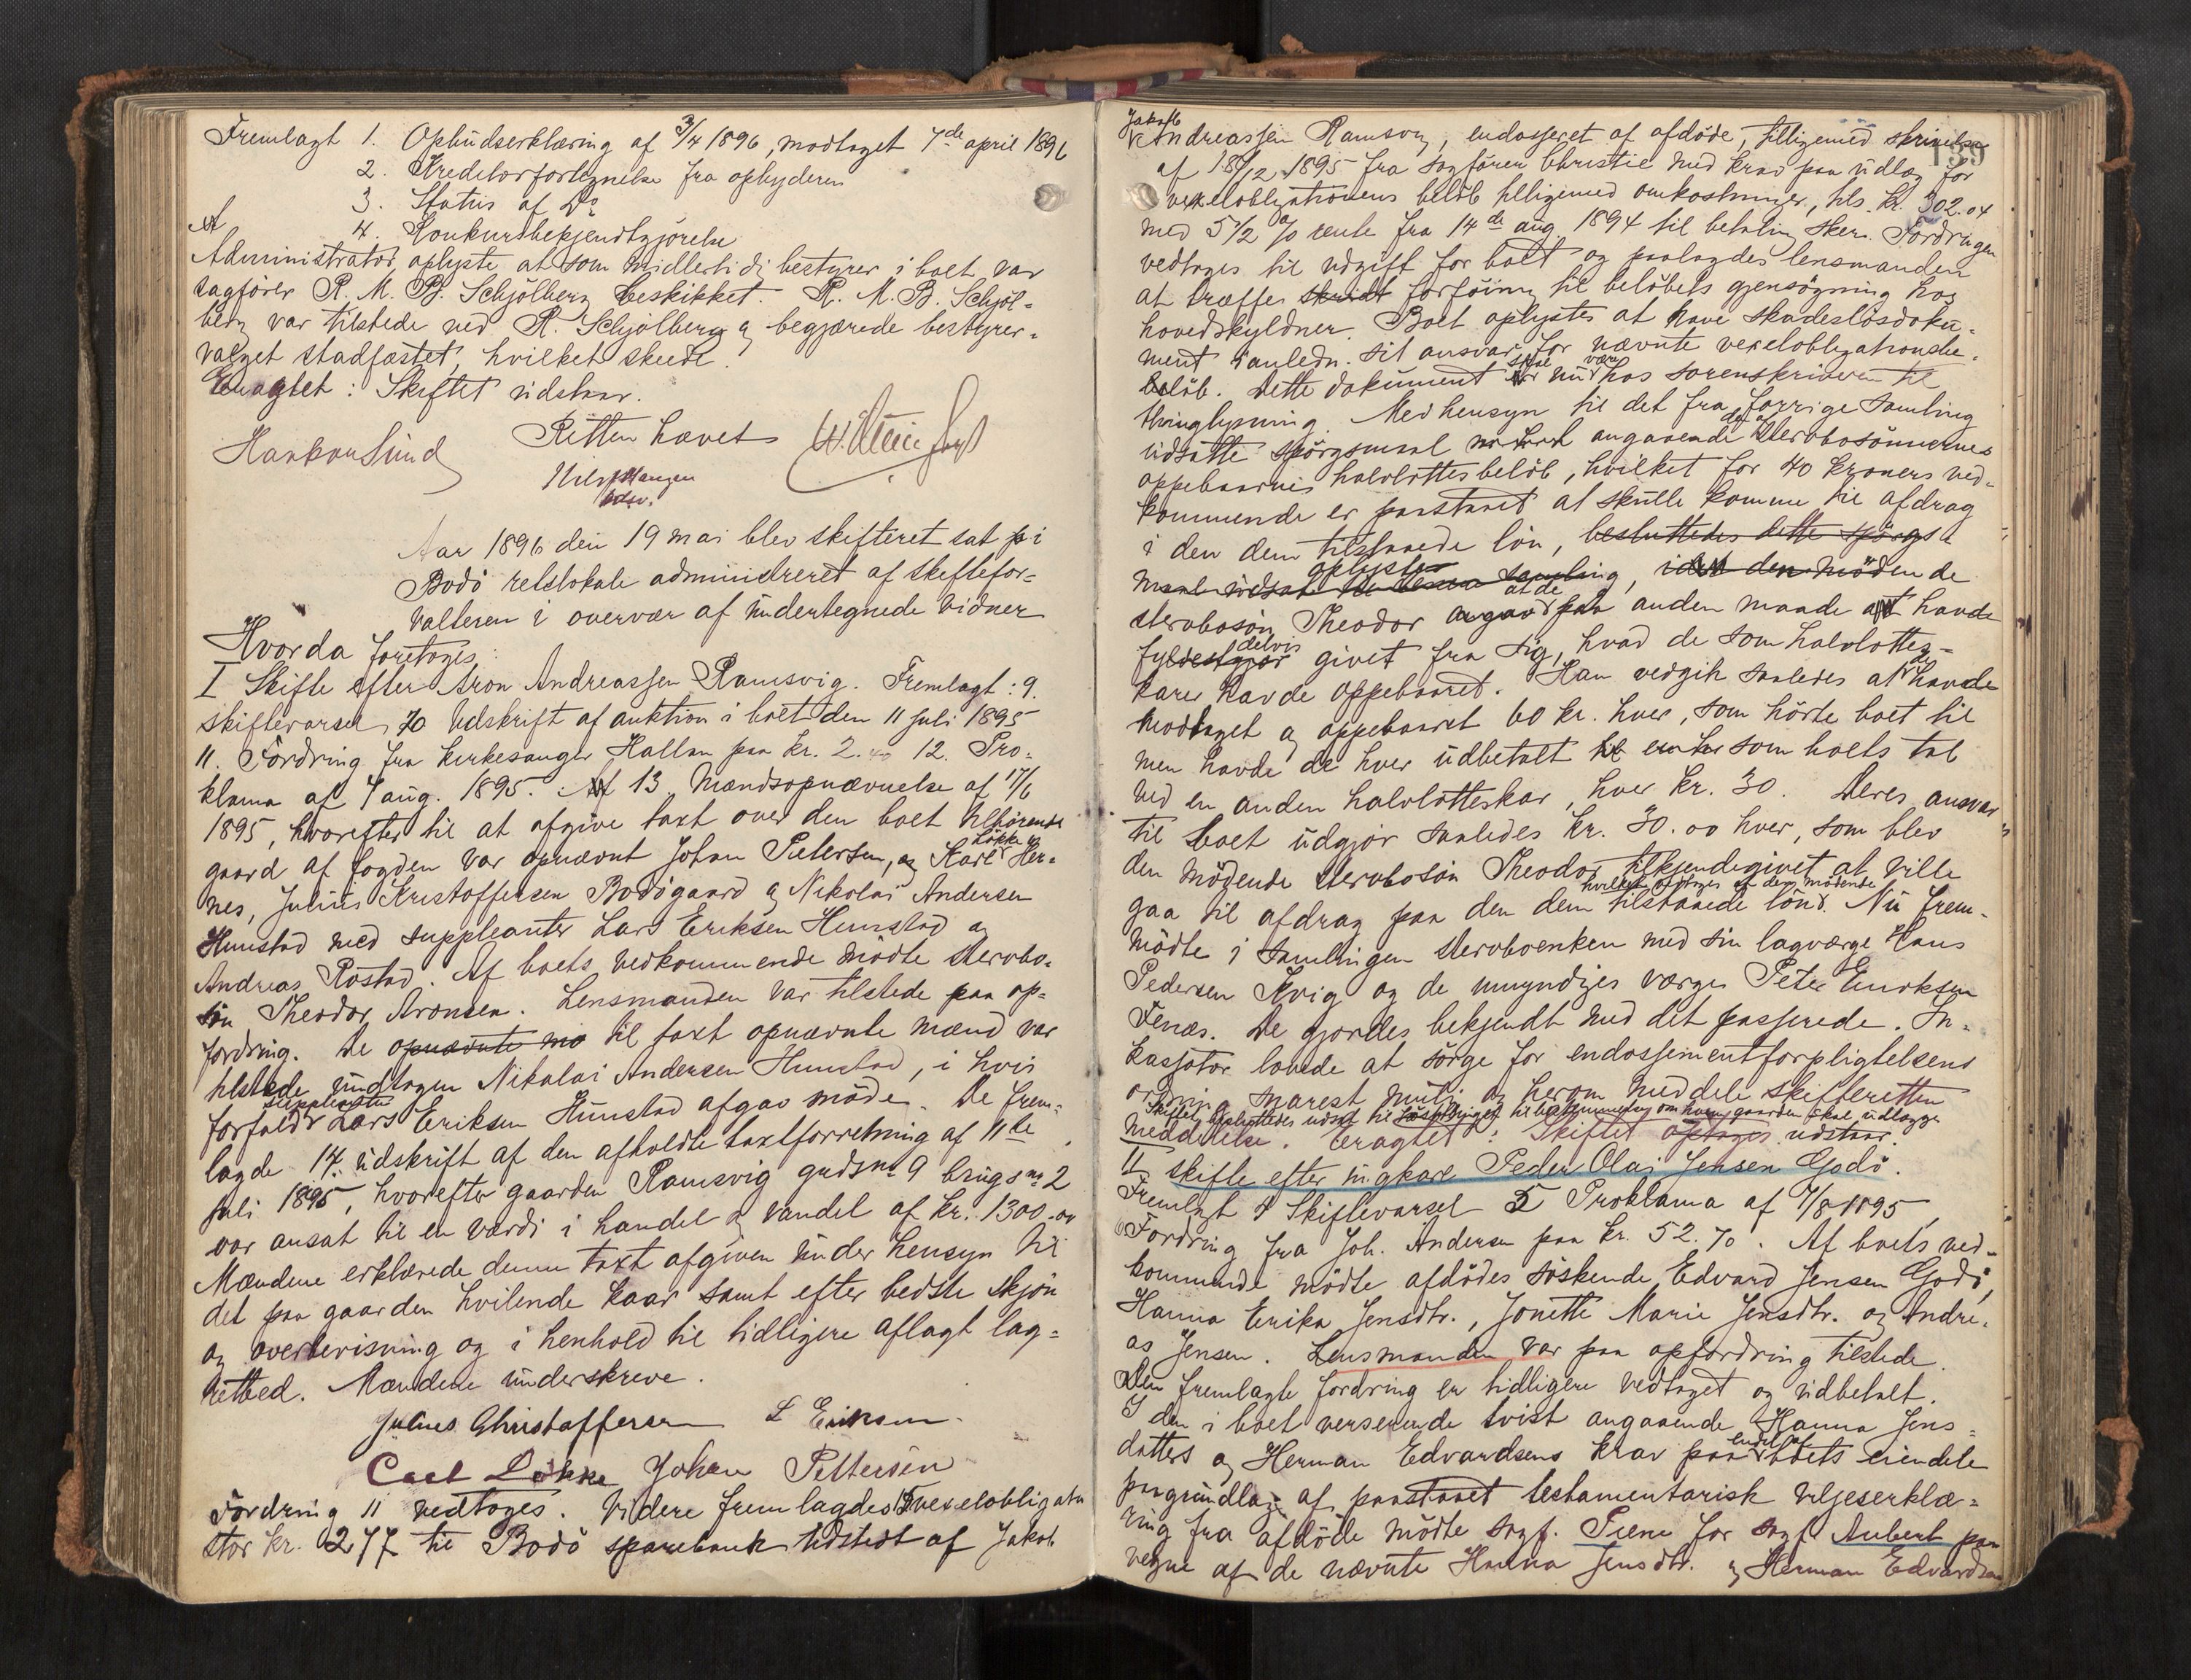 Fremlagt 1. Opbudserklæring af 3/4 1896, modtaget 7de april 1896
2. Kreditorfortegnelse fra opbyderen
3. Status af Do
4. Konkursbekjendtgjørelse
Administrator oplyste at som midlertidig bestyrer i boet var
sagfører R. M. B. Schjølberg beskikket. R. M. B. Schjøl-
berg var tilstede ved R. Schjølberg og begjærede bestyrer-
valget stadfæstet, hvilket skede.
Eragtet: Skiftet udstaar.
Retten hævet
Haakon Lund
Aar 1896 den 19 mai blev skifteret sat på
Bodö retslokale administreret af skiftefor-
valteren i overvær af undertegnede vidner
Hvorda foretoges:
I Skifte efter Aron Andreassen Ramsvig. Fremlagt: 9.
skiftevarsel 10 Udskrift af auktion i boet den 11 juli 1895
11. Fordring fra kirkesanger Hallan paa kr. 2.40 12. Pro-
klama af 7 aug. 1895. 13. Mændsopnævnelse af 17/6
1895, hvorefter til at afgive taxt over den boet tilhørende
gaard af fogden var opnævnt Johan Petersen, og Karl Løkke Her-
nes, Julius Kristoffersen Bodøgaard og Nikolai Andersen
Hunstad med suppleanter Lars Eriksen Hunstad og
Andreas Røstad. Af boets vedkommende mødte stervbo-
søn Theodor Aronsen. Lensmanden var tilstede paa op-
fordring. De opnævnte mæ til taxt opnævnte mænd var
tilstede undtagen Nikolai Andersen Hunstad, i hvis
forfald suppleanten Lars Eriksen Hunstad afgav møde. De frem-
lagde 14. udskrift af den afholdte taxtforretning af 11te
juli 1895, hvorefter gaarden Ramsvig gnds no 9 brugs no 2
var ansat til en værdi i handel og vandel af kr. 1300.00
Mændene erklærede denne taxt afgiven under hensyn til
det paa gaarden hvilende kaar samt efter bedste skjøn
og overbevisning og i henhold til tidligere aflagt lag-
retted. Mændene underskrev.
Julius Christoffersen L Eriksen
Carl Løkke Johan Pettersen
Fordring 11 vedtoges. Videre fremlagdes 15 vexelobligation
stor kr. 277 til Bodö sparebank udstedt af Jakob
139
Andreassen Ramsvig, endosseret af afdøde, tilligemed skrivelse
af 18/12 1895 fra sagfører Christie med krav paa udlæg for
vexelobligationens beløb tilligemed omkostninger, tils. kr. 302.04
med 5 1/2 % rente fra 14de aug. 1894 til betaling sker. Fordringen
vedtoges til udgift for boet og paalagdes lensmanden
at træffe skridt forføining til beløbets gjensøgning hos
hovedskyldner. Boet oplystes at have skadesløsdoku-
ment i anledn. sit ansvar for nævnte vexelobligations be-
beløb. Dette dokument skal nu være hos sorenskriveren til
thinglysning. Med hensyn til det fra forrige samling
udsatte spørgsmaal angaaende det af stervbosønnernes
oppebaarne halvlottesbeløb, hvilket for 40 kroners ved-
kommende er paastaaet at skulle komme til afdrag
i den dem tilstaaede løn, besluttedes dette spørgs
maal udsat til denne samling, oplystes den mødende
stervbosøn Theodor at de paa anden maade havde
fyldestgjør delvis givet fra sig, hvad de som halvlottes-
karer havde oppebaaret. Han vedgik saaledes at de havde
modtaget og oppebaaret 60 kr. hver, som hørte boet til
men havde de hver udbetalt som boets tal
ved en anden halvlotteskar, hver kr. 30. Deres ansvar
til boet udgjør saaledes kr. 30.00 hver, som blev
den mødende stervbosøn Theodor tilkjendegivet at ville
gaa til afdrag paa den dem tilstaaede løn, hvilket vedtoges af den mødende. Nu frem-
mødte i samlingen stervboenken med sin lagværge Hans
Pedersen Kvig og de umyndiges værge Peter Enoksen
Fenes. De gjordes bekjendt med det passerede. In-
kassator lovede at sørge for endossementforpligtelsens
ordning snarest mulig og herom meddele skifteretten
meddelelse. Skiftet besluttedes udsat til bestemmelse om hvem gaarden skal udlægges
Eragtet: Skiftet optages udstaar.
II skifte efter ungkarl Peder Olai Jensen Godø.
Fremlagt 4 Skiftevarsel 5 Proklama af 7/8 1895
6 Fordring fra Joh. Andersen paa kr. 52.70. Af boets ved-
kommende mødte afdødes søskende Edvard Jensen Godø,
Hanna Erika Jensdtr., Jonette Marie Jensdtr. og Andre-
as Jensen. Lensmanden var paa opfordring tilstede.
Den fremlagte fordring er tidligere vedtaget og udbetalt.
I den i boet verserende tvist angaaende Hanna Jens-
datters og Herman Edvardsens krav paa endel af boets eiendele
paa grundlag af paastaaet testamentarisk viljeserklæ-
ring fra afdøde mødte sagf. Piene for sagf. Aubert paa
vegne af de nævnte Hanna Jensdtr. og Herman Edvardsen